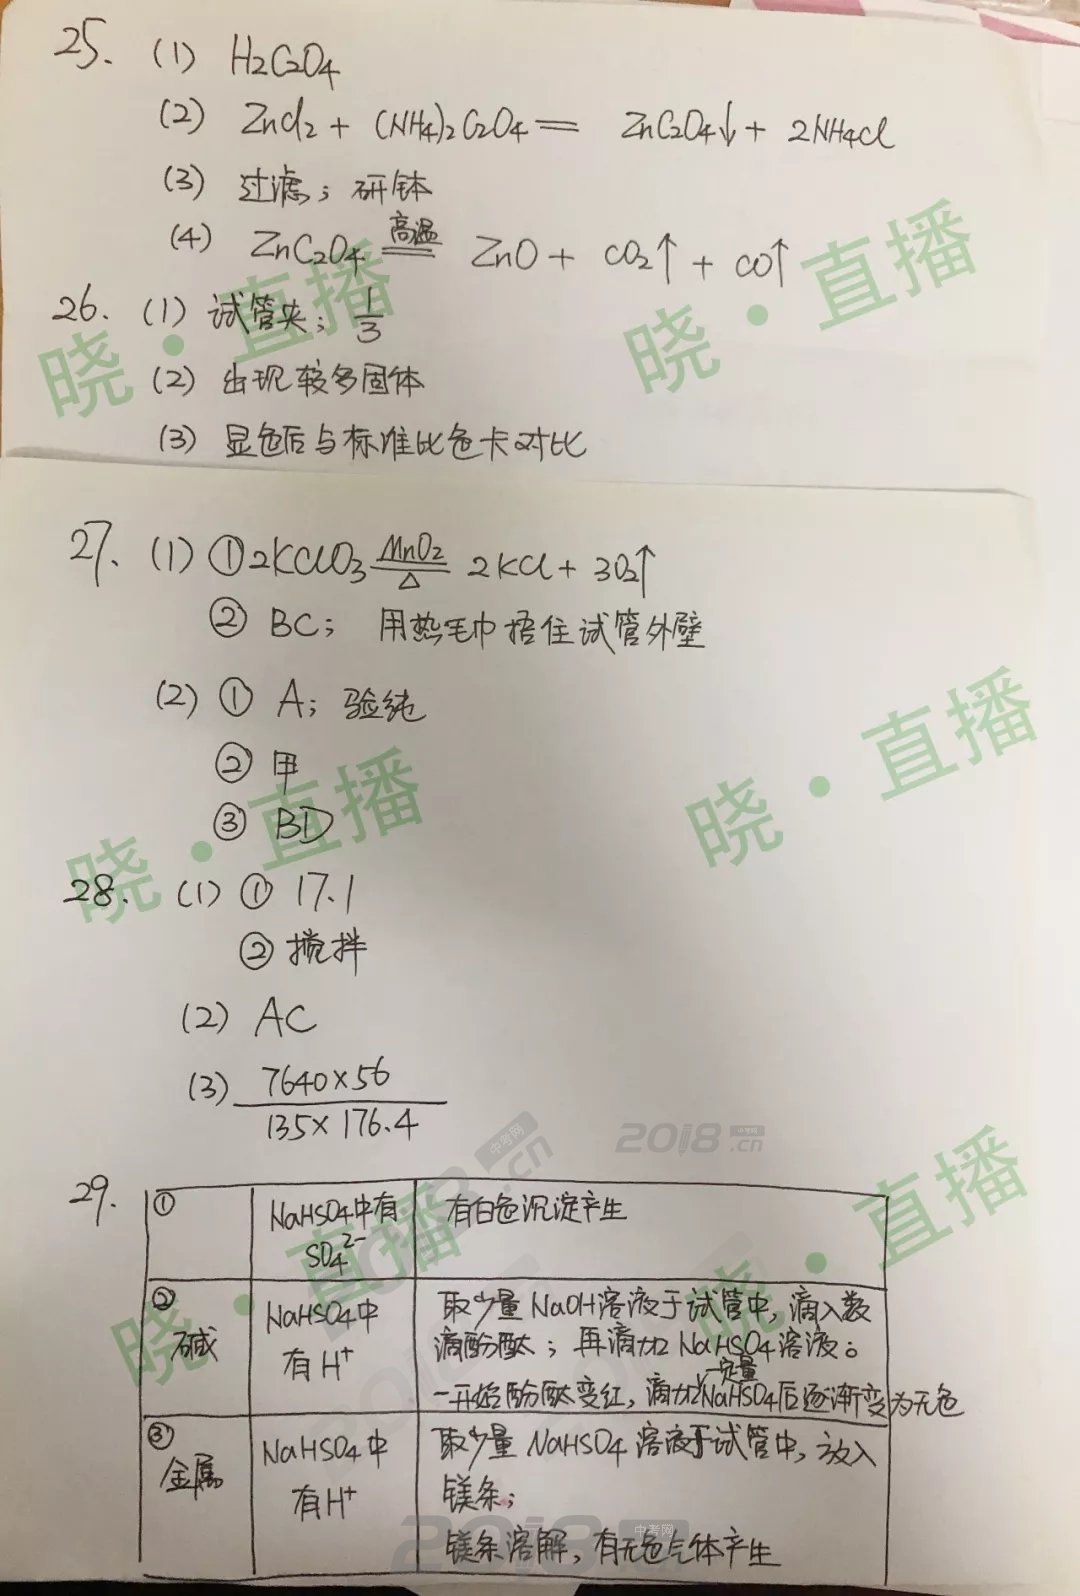 25. (1) H₂C₂O₄
(2) ZnCl₂ + (NH₄)₂C₂O₄ == ZnC₂O₄↓ + 2NH₄Cl
(3) 过滤；研钵
(4) ZnC₂O₄ ==高温== ZnO + CO₂↑ + CO↑
26. (1) 试管夹；1/3
(2) 出现较多固体
(3) 显色后与标准比色卡对比
27. (1) ①2KClO₃ ==MnO₂/△== 2KCl + 3O₂↑
② BC；用热毛巾捂住试管外壁
(2) ① A；验纯
② 甲
③ BD
28. (1) ① 17.1
② 搅拌
(2) AC
(3) 7640×56
135×176.4
29.
① NaHSO₄中有SO₄²⁻ 有白色沉淀产生
② 碱 NaHSO₄中有H⁺ 取少量NaOH溶液于试管中，滴入数
滴酚酞；再滴加NaHSO₄溶液。
一开始酚酞变红，滴加一定量NaHSO₄后逐渐变为无色
③ 金属 NaHSO₄中有H⁺ 取少量NaHSO₄溶液于试管中，放入
镁条；
镁条溶解，有无色气体产生
晓·直播
晓·直播
晓·直播
晓·直播
晓·直播
晓·直播
2018.cn
中考网
2018.cn
中考网
2018
中考网